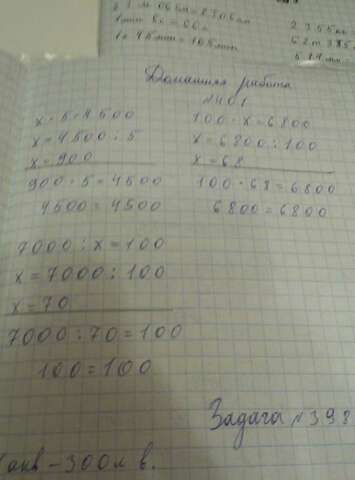 1 ч 45 мин = 105 мин
Домашняя работа
№401
x · 5 = 4500
x = 4500 : 5
x = 900
900 · 5 = 4500
4500 = 4500
100 · x = 6800
x = 6800 : 100
x = 68
100 · 68 = 6800
6800 = 6800
7000 : x = 100
x = 7000 : 100
x = 70
7000 : 70 = 100
100 = 100
Задача №398
– 300 л в.